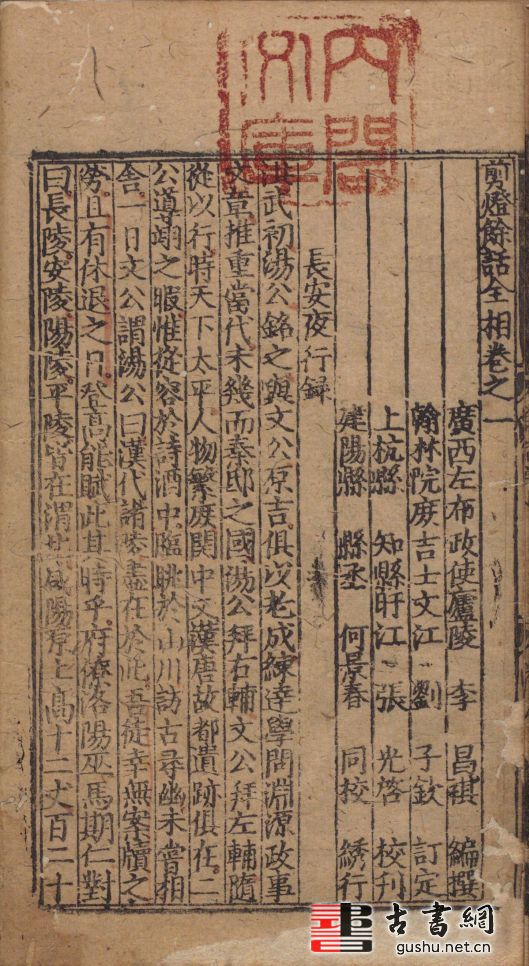 剪燈餘話全相卷之一
廣西左布政使廬陵 李 昌祺 編撰
翰林院庻吉士文江 劉 子欽 訂定
上杭縣 知縣盱江 張 光啓 校刊
建陽縣 縣丞 何景春 同校 綉行
長安夜行録
武初湯公銘之與文公原吉俱以老成練達學問淵源政事
文章推重當代未幾而奉邸之國湯公拜右輔文公拜左輔隨
從以行時天下太平人物繁庻関中又漢唐故都遺跡俱在二
公導翊之暇惟從容於詩酒中臨眺於山川訪古尋幽未嘗相
舍一日文公謂湯公曰漢代諸陵盡在於此吾徒幸無案牘之
勞且有休退之日登高能賦此其時乎府僚洛陽巫馬期仁對
曰長陵安陵陽陵平陵皆在渭北咸陽原上高十二丈百二十
內閣
古書網
gushu.net.cn